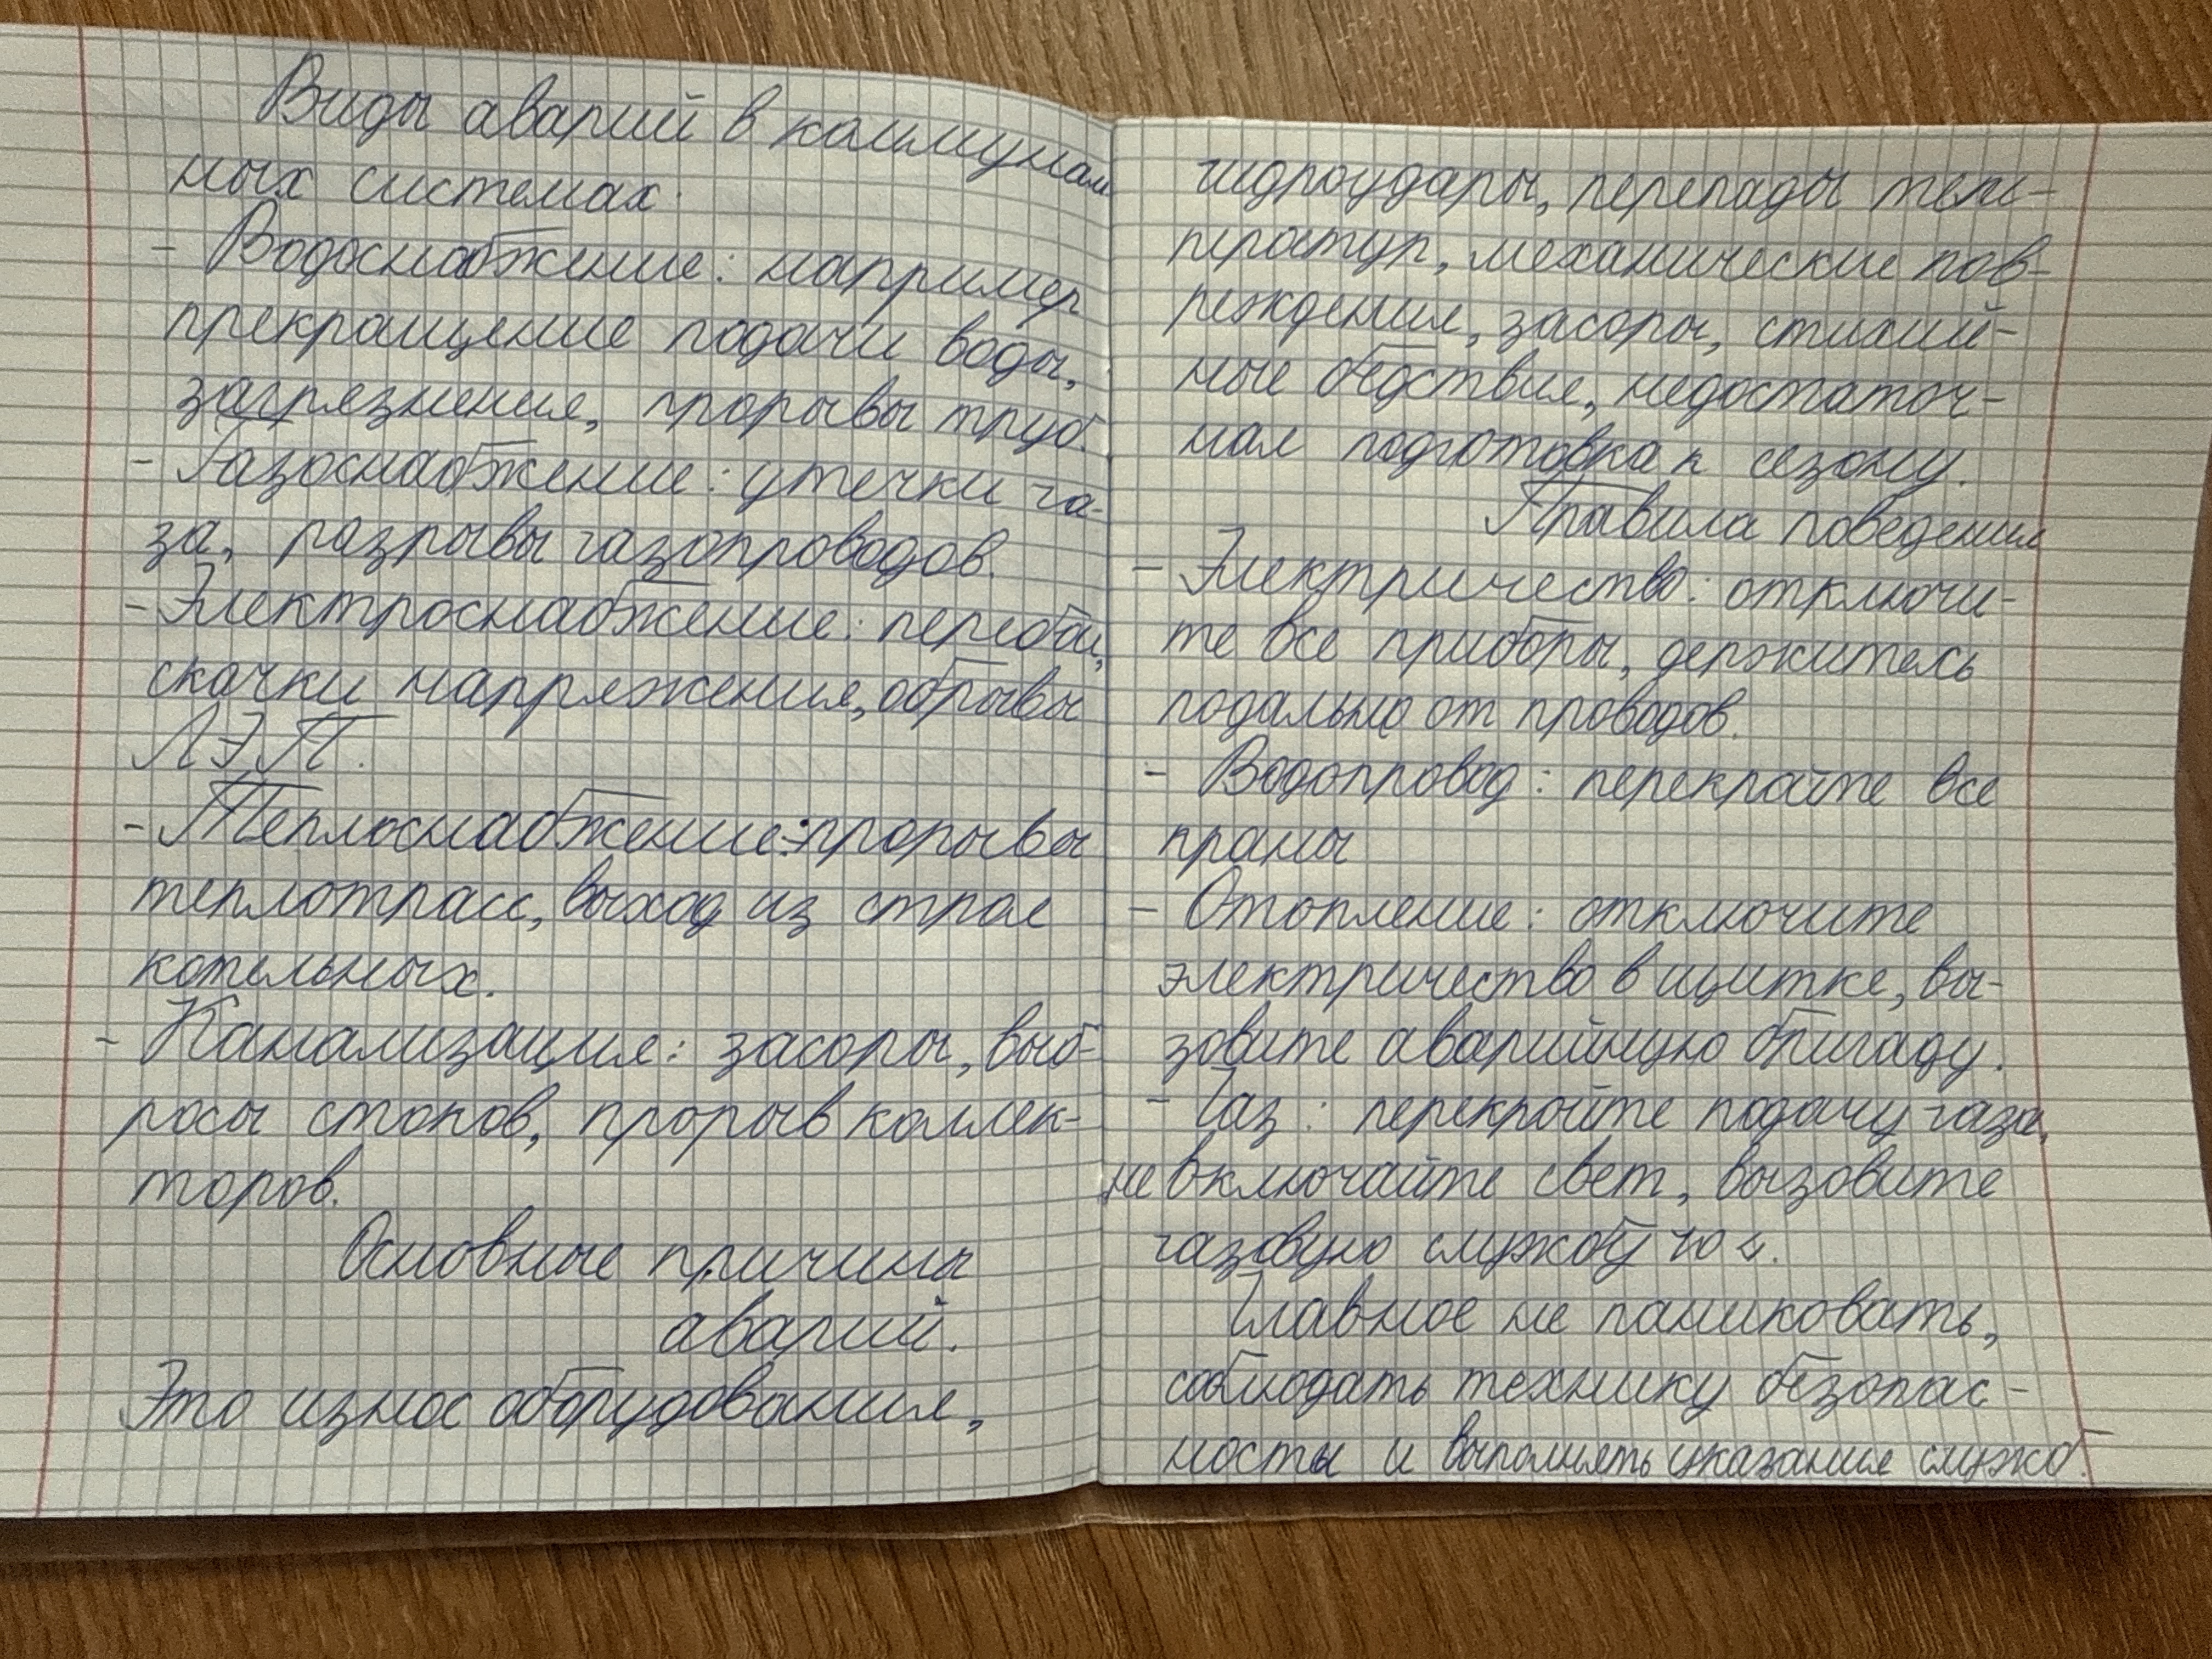 Виды аварий в коммуналь
ных системах.
- Водоснабжение: например
прекращение подачи воды,
загрязнения, прорывы труб.
- Газоснабжение: утечки га-
за, разрывы газопроводов.
- Электроснабжение: перебои,
скачки напряжения, обрывы
ЛЭП.
- Теплоснабжение: прорывы
теплотрасс, выход из строя
котельных.
- Канализация: засоры, выб-
росы стоков, прорыв коллек-
торов.
Основные причины
аварий.
Это износ оборудования,
гидроудары, перепады тем-
ператур, механические пов-
реждения, засоры, стихий-
ные бедствия, недостаточ-
ная подготовка к сезону.
Правила поведения
- Электричество: отключи-
те все приборы, держитесь
подальше от проводов.
- Водопровод: перекройте все
краны
- Отопление: отключите
электричество в щитке, вы-
зовите аварийную бригаду.
- Газ: перекройте подачу газа,
не включайте свет, вызовите
газовую службу 104.
Главное не паниковать,
соблюдать технику безопас-
ности и выполнять указания служб.